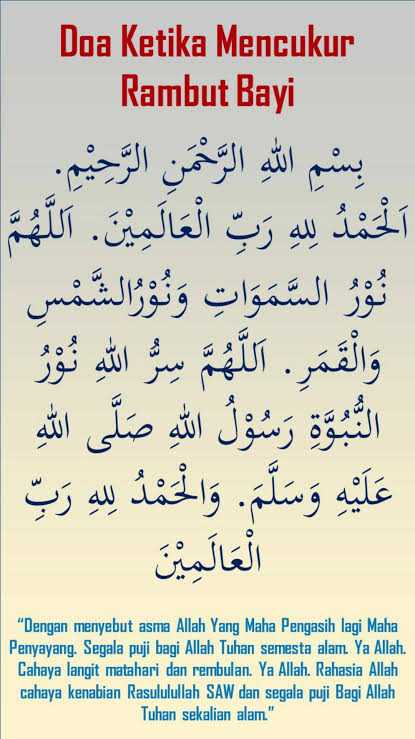 Doa Ketika Mencukur
Rambut Bayi
بِسْمِ اللهِ الرَّحْمَنِ الرَّحِيْمِ.
اَلْحَمْدُ لِلهِ رَبِّ الْعَالَمِيْنَ. اَللَّهُمَّ
نُوْرُ السَّمَوَاتِ وَنُوْرُالشَّمْسِ
وَالْقَمَرِ. اَللَّهُمَّ سِرُّ اللهِ نُوْرُ
النُّبُوَّةِ رَسُوْلُ اللهِ صَلَّى اللهُ
عَلَيْهِ وَسَلَّمَ. وَالْحَمْدُ لِلهِ رَبِّ
الْعَالَمِيْنَ
“Dengan menyebut asma Allah Yang Maha Pengasih lagi Maha
Penyayang. Segala puji bagi Allah Tuhan semesta alam. Ya Allah.
Cahaya langit matahari dan rembulan. Ya Allah. Rahasia Allah
cahaya kenabian Rasululullah SAW dan segala puji Bagi Allah
Tuhan sekalian alam.”